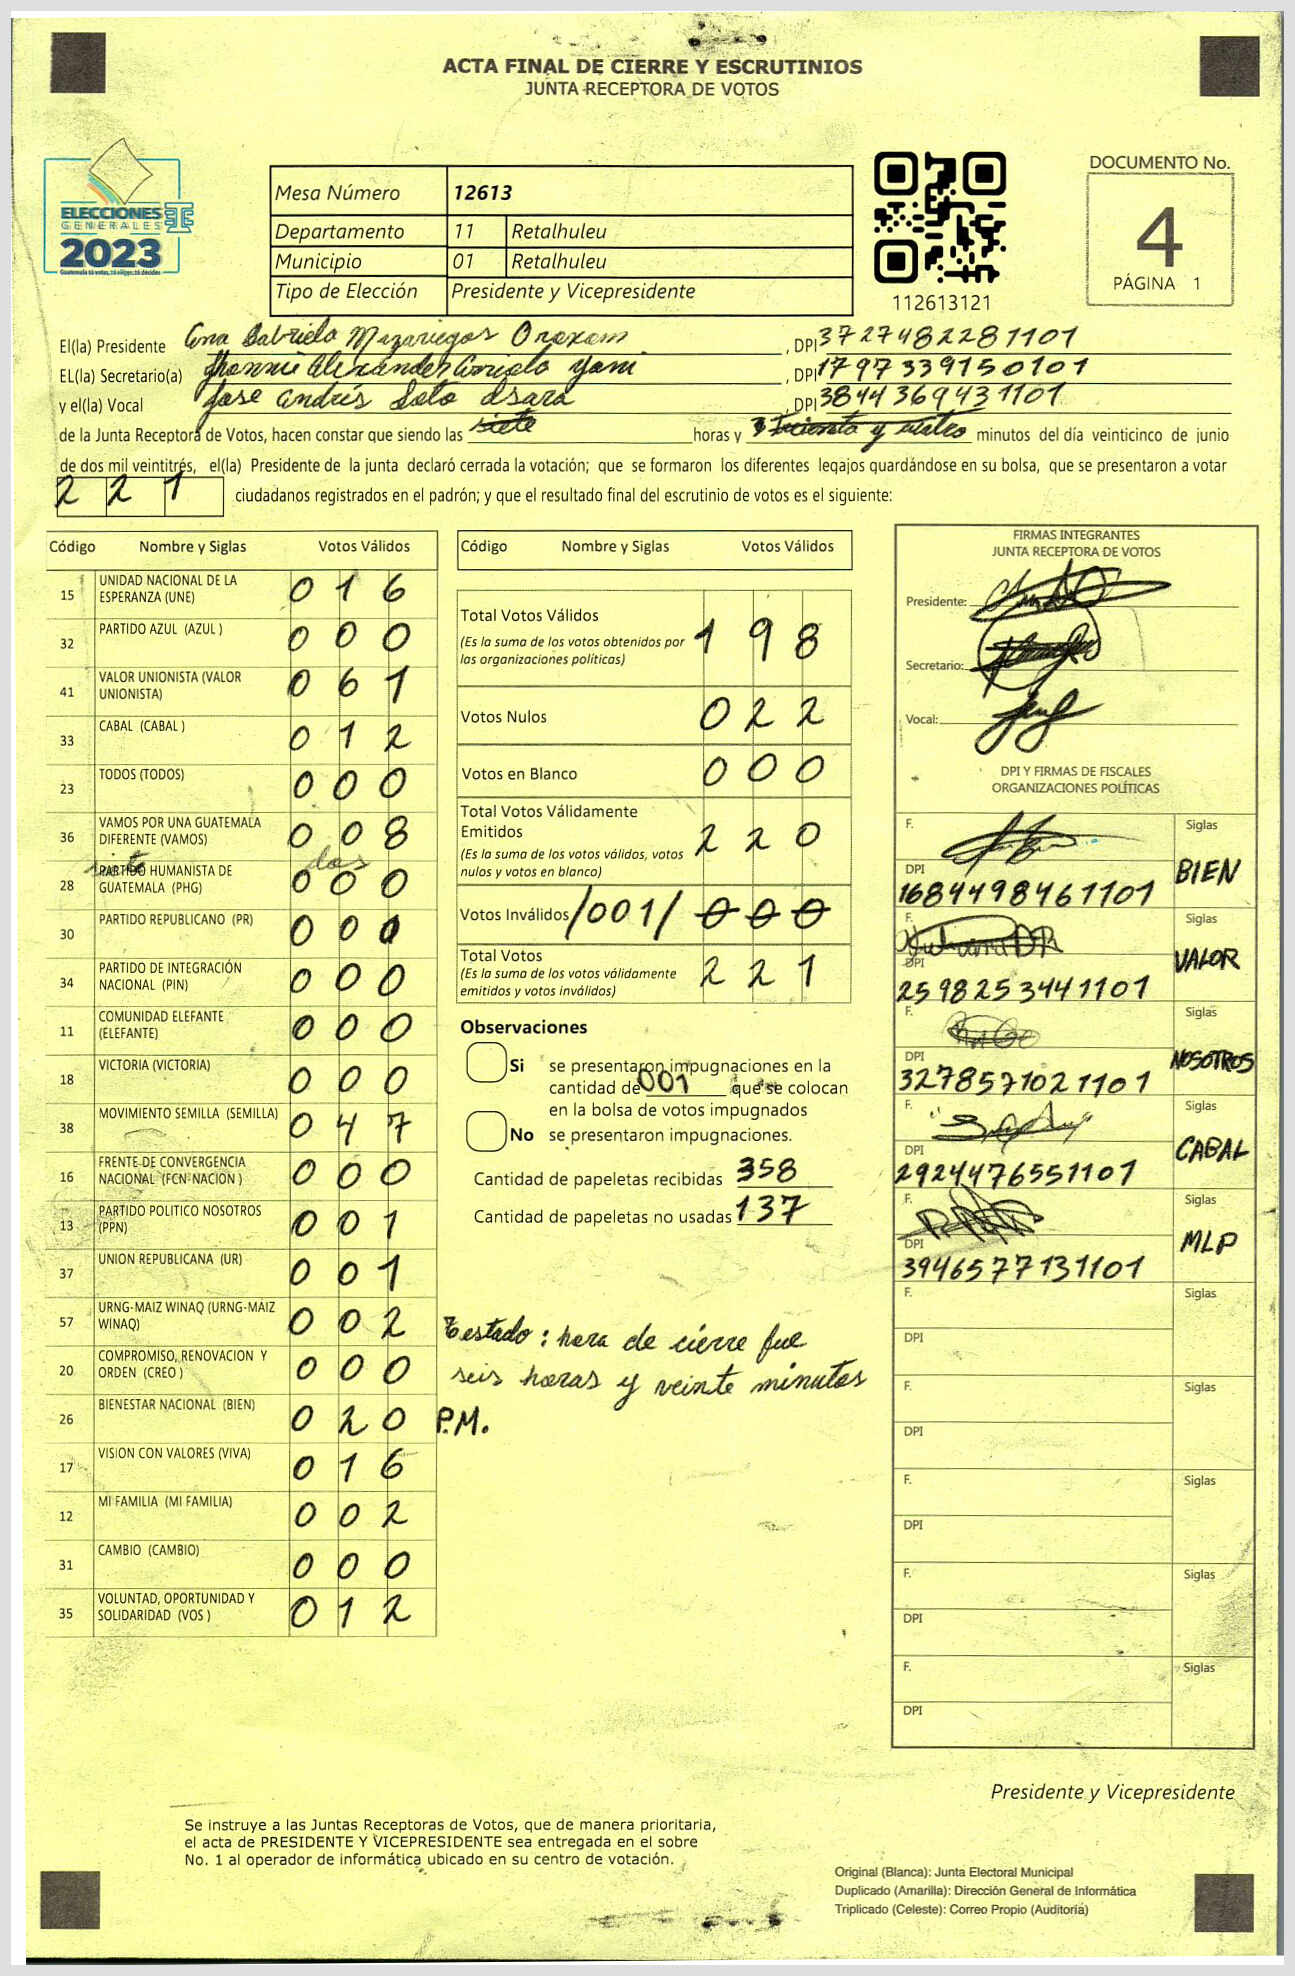 ACTA FINAL DE CIERRE Y ESCRUTINIOS
JUNTA RECEPTORA DE VOTOS
ELECCIONES
GENERALES
2023
Guatemala tú votas, tú eliges, tú decides
Mesa Número 12613
Departamento 11 Retalhuleu
Municipio 01 Retalhuleu
Tipo de Elección Presidente y Vicepresidente
112613121
DOCUMENTO No.
4
PÁGINA 1
El(la) Presidente Ana Gabriela Mazariegos Oroxom, DPI 3727482281101
EL(la) Secretario(a) Jhonnie Alexánder Arriola Yani, DPI 1797339150101
y el(la) Vocal Jose Andrés Soto Isara, DPI 3844369431101
de la Junta Receptora de Votos, hacen constar que siendo las siete horas y cuatro minutos del día veinticinco de junio
de dos mil veintitrés, el(la) Presidente de la junta declaró cerrada la votación; que se formaron los diferentes legajos guardándose en su bolsa, que se presentaron a votar
221 ciudadanos registrados en el padrón; y que el resultado final del escrutinio de votos es el siguiente:
Código Nombre y Siglas Votos Válidos
15 UNIDAD NACIONAL DE LA ESPERANZA (UNE) 016
32 PARTIDO AZUL (AZUL ) 000
41 VALOR UNIONISTA (VALOR UNIONISTA) 061
33 CABAL (CABAL ) 012
23 TODOS (TODOS) 000
36 VAMOS POR UNA GUATEMALA DIFERENTE (VAMOS) 008
siete dos
28 PARTIDO HUMANISTA DE GUATEMALA (PHG) 000
30 PARTIDO REPUBLICANO (PR) 000
34 PARTIDO DE INTEGRACIÓN NACIONAL (PIN) 000
11 COMUNIDAD ELEFANTE (ELEFANTE) 000
18 VICTORIA (VICTORIA) 000
38 MOVIMIENTO SEMILLA (SEMILLA) 047
16 FRENTE DE CONVERGENCIA NACIONAL (FCN-NACION ) 000
13 PARTIDO POLITICO NOSOTROS (PPN) 001
37 UNION REPUBLICANA (UR) 001
57 URNG-MAIZ WINAQ (URNG-MAIZ WINAQ) 002
20 COMPROMISO, RENOVACION Y ORDEN (CREO ) 000
26 BIENESTAR NACIONAL (BIEN) 020
17 VISION CON VALORES (VIVA) 016
12 MI FAMILIA (MI FAMILIA) 002
31 CAMBIO (CAMBIO) 000
35 VOLUNTAD, OPORTUNIDAD Y SOLIDARIDAD (VOS ) 012
Código Nombre y Siglas Votos Válidos
Total Votos Válidos 198
(Es la suma de los votos obtenidos por
las organizaciones políticas)
Votos Nulos 022
Votos en Blanco 000
Total Votos Válidamente
Emitidos 220
(Es la suma de los votos válidos, votos
nulos y votos en blanco)
Votos Inválidos /001/ 000
Total Votos 221
(Es la suma de los votos válidamente
emitidos y votos inválidos)
Observaciones
Si se presentaron impugnaciones en la
cantidad de 001 que se colocan
en la bolsa de votos impugnados
No se presentaron impugnaciones.
Cantidad de papeletas recibidas 358
Cantidad de papeletas no usadas 137
Testado: hora de cierre fue
seis horas y veinte minutos
P.M.
FIRMAS INTEGRANTES
JUNTA RECEPTORA DE VOTOS
Presidente:
Secretario:
Vocal:
DPI Y FIRMAS DE FISCALES
ORGANIZACIONES POLÍTICAS
F. Siglas
DPI 1684498461101 BIEN
F. Siglas
DPI 2598253441101 VALOR
F. Siglas
DPI 3278571021101 NOSOTROS
F. Siglas
DPI 2924476551101 CABAL
F. Siglas
DPI 3946577131101 MLP
F. Siglas
DPI
F. Siglas
DPI
F. Siglas
DPI
F. Siglas
DPI
F. Siglas
DPI
Presidente y Vicepresidente
Se instruye a las Juntas Receptoras de Votos, que de manera prioritaria,
el acta de PRESIDENTE Y VICEPRESIDENTE sea entregada en el sobre
No. 1 al operador de informática ubicado en su centro de votación.
Original (Blanca): Junta Electoral Municipal
Duplicado (Amarilla): Dirección General de Informática
Triplicado (Celeste): Correo Propio (Auditoría)